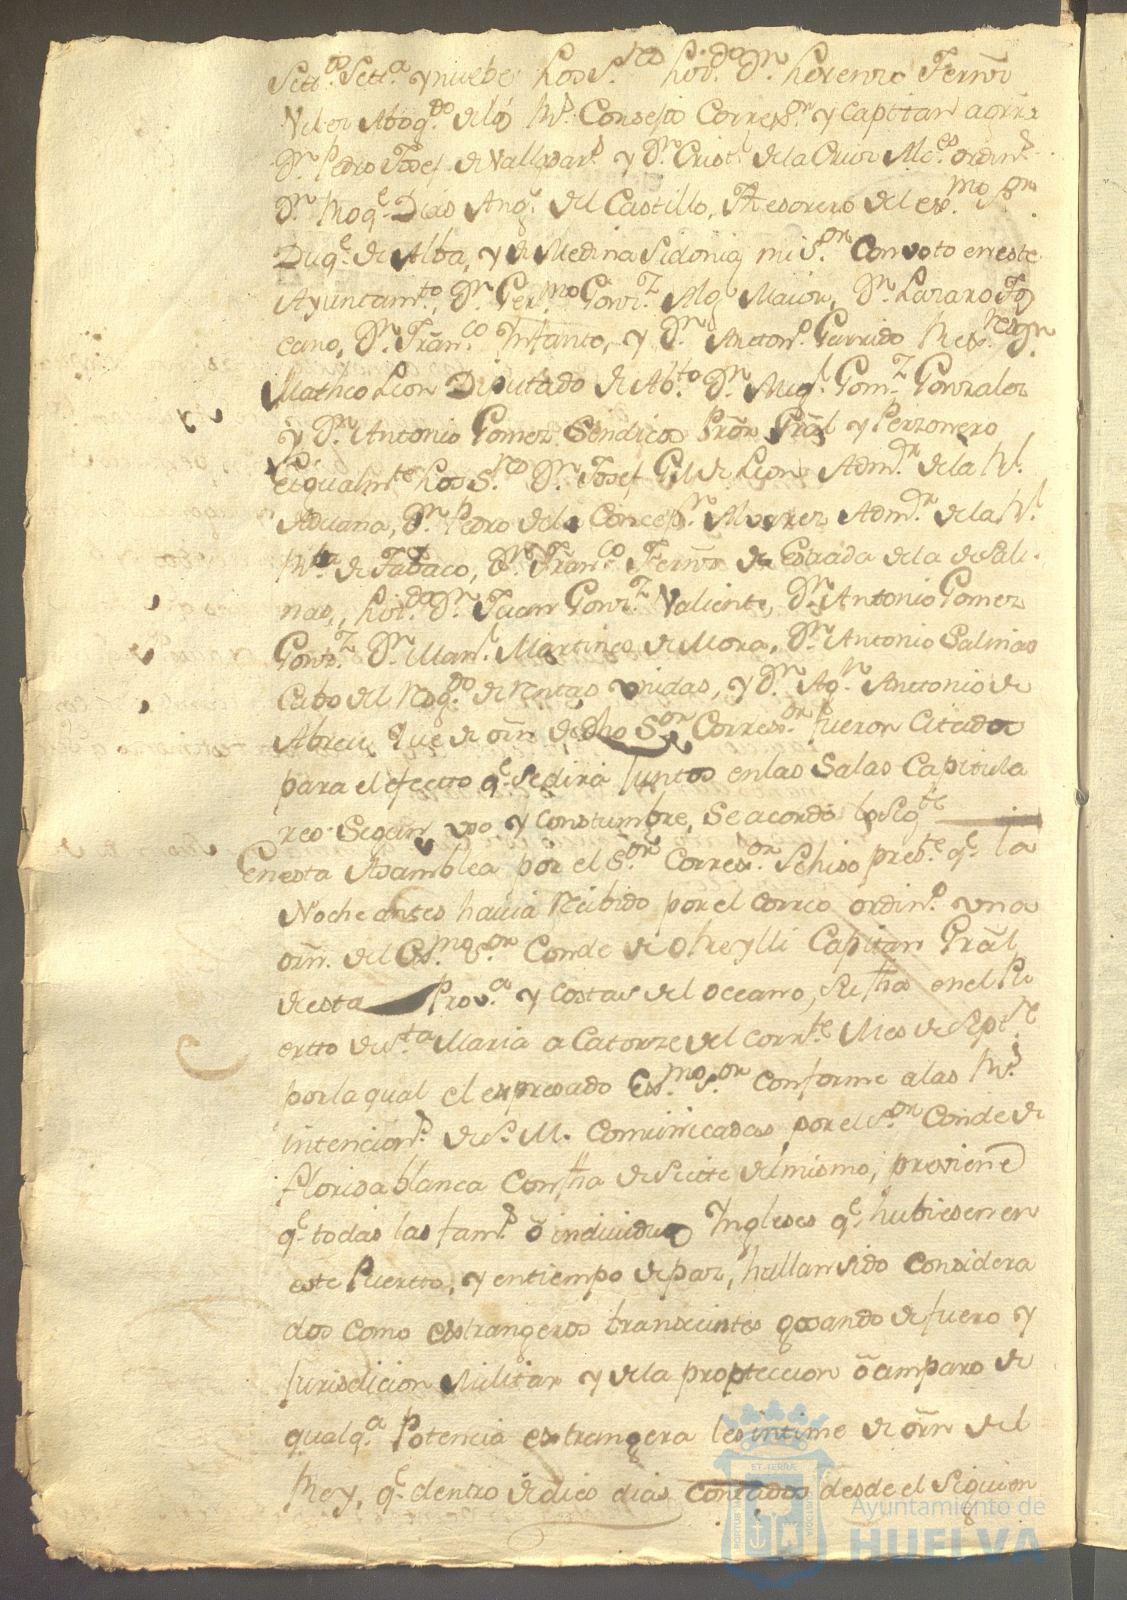 Settos. Setta. y nuebe: Los Sres. Lizdo. Dn. Lorenzo Fernz.
Velez Abogdo. de los Rs. Consejos Correxor. y Capitan a grra.
Dn. Pedro Josef de Valldars. y Dn. Cristl. de la Cruz Alces. ordins.
Dn. Roqe. Dias Angl. del Castillo, Thesorero del exmo. Sor.
Duqe. de Alba, y de Medina Sidonia mi Sor. con voto en este
Ayuntamto. Dn. Germo. Gonzz. Alg. Maior, Dn. Lazaro
cano, Dn. Franco. Infante, y Dn. Anton. Garrido Rexres. Dn.
Matheo Leon Diputado de Abto. Dn. Migl. Gomz. Gonzalez
y Dn. Antonio Gomez Sendicos Pror. Gral y Perzonero
E igualmte. Los Sres. Dn. Josef Gil de Leon Admor. de la Rl.
Aduana, Dn. Pedro de la Concepn. Alvarez Admor. de la Rl.
Rta. de Tabaco, Dn. Franco. Fernz. de Estrada de la de Sali
nas, Lizdo. Dn. Juan Gonzz. Valiente, Dn. Antonio Gomez
Gonzz. Dn. Manl. Martines de Mora, Dn. Antonio Salinas
Cabo del Resgdo. de Rentas unidas, y Dn. Agn. Anttonio de
Abreu, que de orn de dho Sor. Correxor. fueron Citados
para el efecto qe. se dira Juntos en las Salas Capitula
res Segun uso y Constumbre, Se acordo lo Sigte.
En esta Asamblea por el Sor. Correxor. Se hiso preste. qe. la
Noche antes havia Recibido por el Correo ordino. una
orn. del Exmo. Sor. Conde de Oreylli Capitan Gral
de esta Prova. y Costas del oceano, Su fha en el Pu
ertto de Sta Maria a Catorze del corrte. Mes de Sepre.
por la qual el expresado Exmo. Sor. conforme a las Rs.
intencions. de S. M. Comunicadas por el Sor. Conde de
Florida blanca Con fha de Siete del mismo, previene
qe. todas las fams. ó individuos Ingleses qe. hubiesen en
este Puertto, y en tiempo de paz, hallan sido Considera
dos como estrangeros transeuntes gosando de fuero y
Jurisdicion Militar y de la proteccion ó amparo de
qualqa. Potencia extrangera les intime de orn del
Rey, qe. dentro de dies dias contados desde el Siguien
Ayuntamiento de
HUELVA